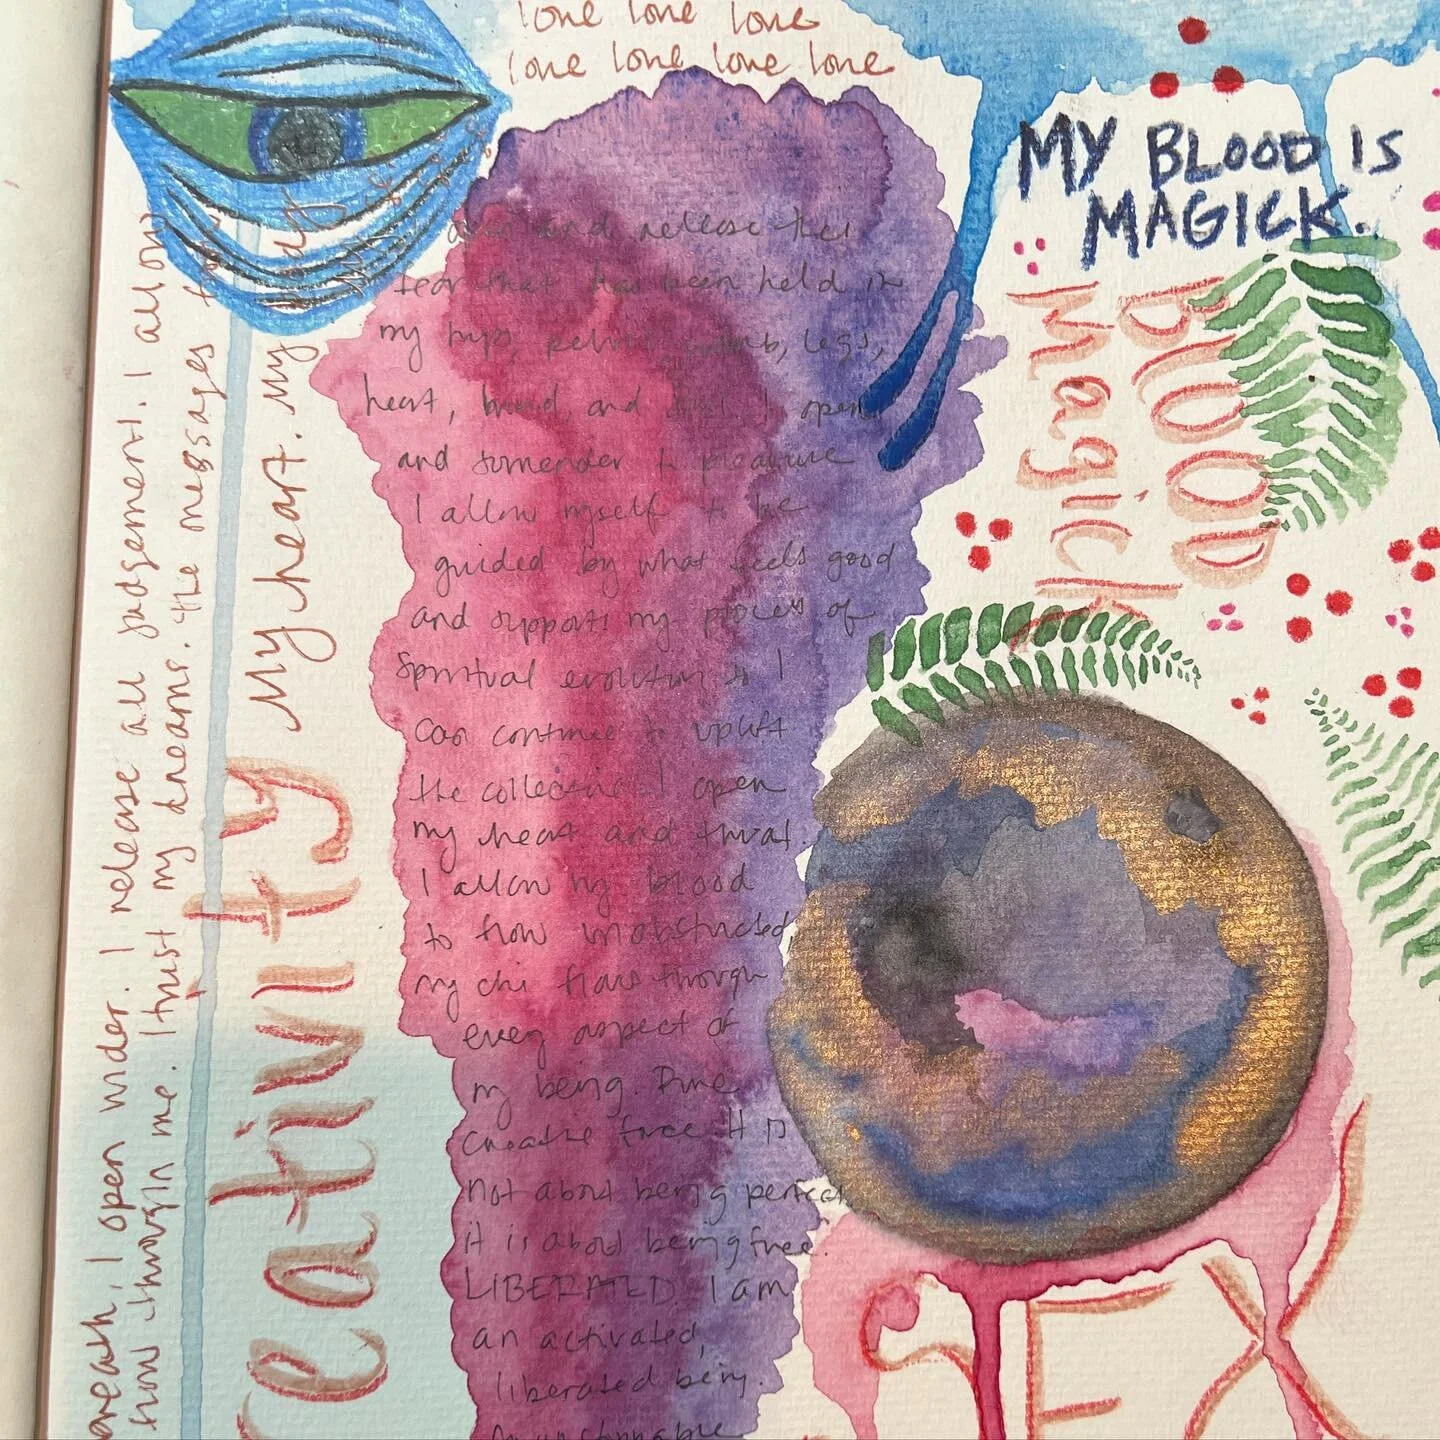 love love love
love love love love
MY BLOOD IS
MAGICK.
BLOOD
Magick
and release the
fear that has been held in
my hips, pelvis, womb, legs,
heart, and I open
and surrender to pleasure
I allow myself to be
guided by what feels good
and supports my process of
Spiritual evolution so I
can continue to uplift
the collective. I open
my heart and throat.
I allow my blood
to flow unobstructed,
my chi flows through
every aspect of
my being. Pure
creative force. It is
not about being perfect
it is about being free.
LIBERATED. I am
an activated,
liberated being.
unstoppable
reath, I open wider. I release all judgement. I allow
now through me. I trust my dreams. the messages
My heart. My
reativity
SEX